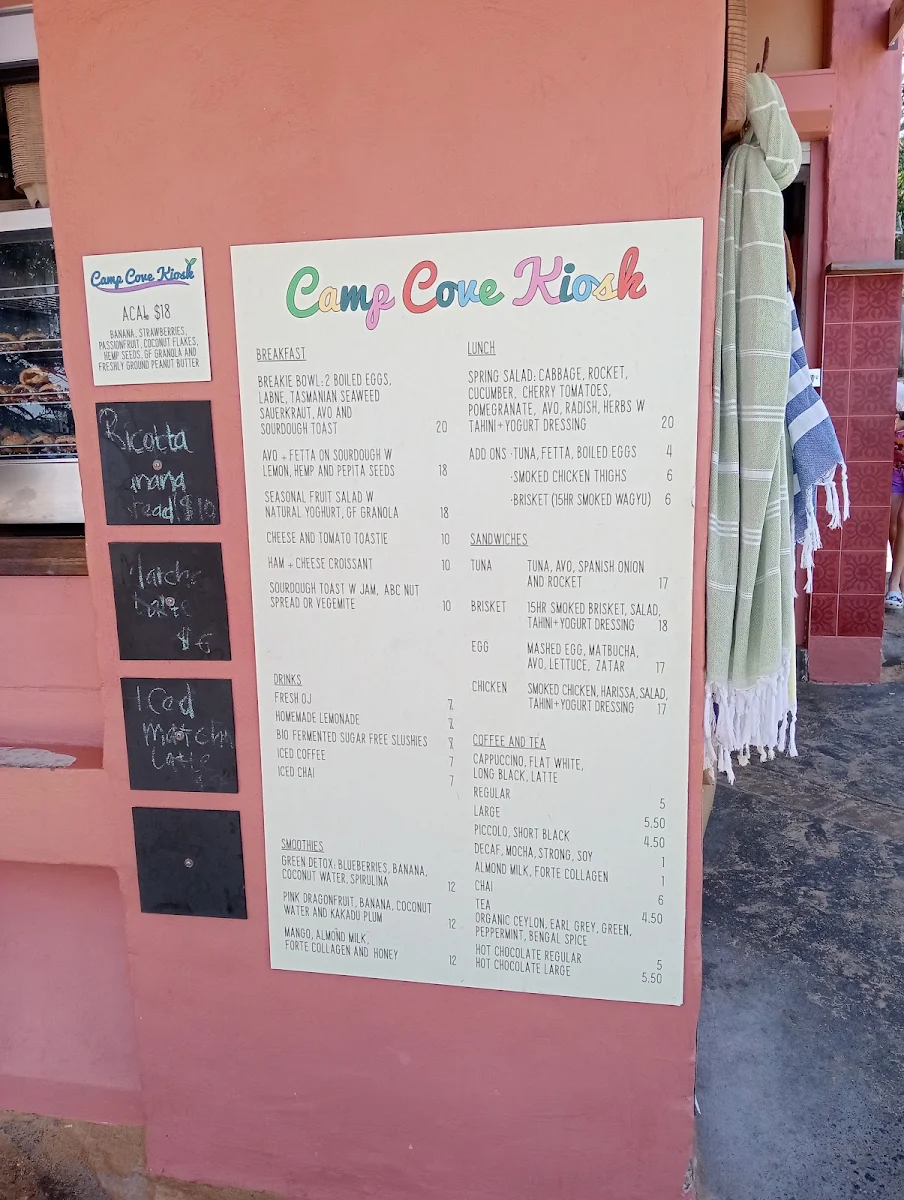 Camp Cove Kiosk
ACAL $18
BANANA, STRAWBERRIES,
PASSIONFRUIT, COCONUT FLAKES,
HEMP SEEDS, GF GRANOLA AND
FRESHLY GROUND PEANUT BUTTER
Ricotta
$10
$6
Iced
matcha
Latte
Camp Cove Kiosk
BREAKFAST
BREAKIE BOWL: 2 BOILED EGGS,
LABNE, TASMANIAN SEAWEED
SAUERKRAUT, AVO AND
SOURDOUGH TOAST 20
AVO + FETTA ON SOURDOUGH W
LEMON, HEMP AND PEPITA SEEDS 18
SEASONAL FRUIT SALAD W
NATURAL YOGHURT, GF GRANOLA 18
CHEESE AND TOMATO TOASTIE 10
HAM + CHEESE CROISSANT 10
SOURDOUGH TOAST W JAM, ABC NUT
SPREAD OR VEGEMITE 10
DRINKS
FRESH OJ 7
HOMEMADE LEMONADE 7
BIO FERMENTED SUGAR FREE SLUSHIES 8
ICED COFFEE 7
ICED CHAI 7
SMOOTHIES
GREEN DETOX: BLUEBERRIES, BANANA,
COCONUT WATER, SPIRULINA 12
PINK DRAGONFRUIT, BANANA, COCONUT
WATER AND KAKADU PLUM 12
MANGO, ALMOND MILK,
FORTE COLLAGEN AND HONEY 12
LUNCH
SPRING SALAD: CABBAGE, ROCKET,
CUCUMBER, CHERRY TOMATOES,
POMEGRANATE, AVO, RADISH, HERBS W
TAHINI+YOGURT DRESSING 20
ADD ONS ·TUNA, FETTA, BOILED EGGS 4
·SMOKED CHICKEN THIGHS 6
·BRISKET (15HR SMOKED WAGYU) 6
SANDWICHES
TUNA TUNA, AVO, SPANISH ONION
AND ROCKET 17
BRISKET 15HR SMOKED BRISKET, SALAD,
TAHINI+YOGURT DRESSING 18
EGG MASHED EGG, MATBUCHA,
AVO, LETTUCE, ZATAR 17
CHICKEN SMOKED CHICKEN, HARISSA, SALAD,
TAHINI+YOGURT DRESSING 17
COFFEE AND TEA
CAPPUCCINO, FLAT WHITE,
LONG BLACK, LATTE
REGULAR 5
LARGE 5.50
PICCOLO, SHORT BLACK 4.50
DECAF, MOCHA, STRONG, SOY 1
ALMOND MILK, FORTE COLLAGEN 1
CHAI 6
TEA 4.50
ORGANIC CEYLON, EARL GREY, GREEN,
PEPPERMINT, BENGAL SPICE
HOT CHOCOLATE REGULAR 5
HOT CHOCOLATE LARGE 5.50